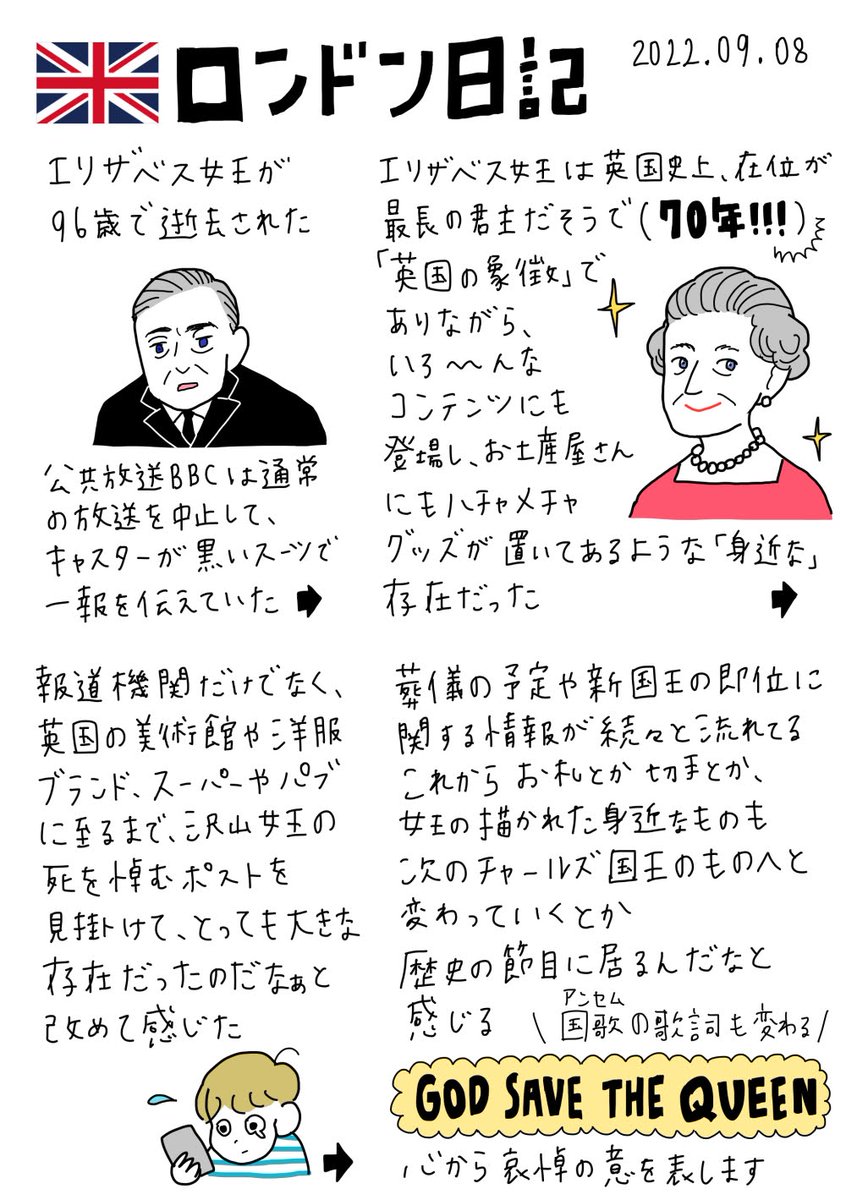 ロンドン日記
2022.09.08
エリザベス女王が
96歳で逝去された
公共放送BBCは通常
の放送を中止して、
キャスターが黒いスーツで
一報を伝えていた
エリザベス女王は英国史上、在位が
最長の君主だそうで(70年!!!)
「英国の象徴」で
ありながら、
いろ〜〜んな
コンテンツにも
登場し、お土産屋さん
にもハチャメチャ
グッズが置いてあるような「身近な」
存在だった
報道機関だけでなく、
英国の美術館や洋服
ブランド、スーパーやパブ
に至るまで、沢山女王の
死を悼むポストを
見掛けて、とっても大きな
存在だったのだなぁと
改めて感じた
葬儀の予定や新国王の即位に
関する情報が続々と流れてる
これからお札とか切手とか、
女王の描かれた身近なものも
次のチャールズ国王のものへと
変わっていくとか
歴史の節目に居るんだなと
感じる
アンセム
\国歌の歌詞も変わる/
GOD SAVE THE QUEEN
心から哀悼の意を表します